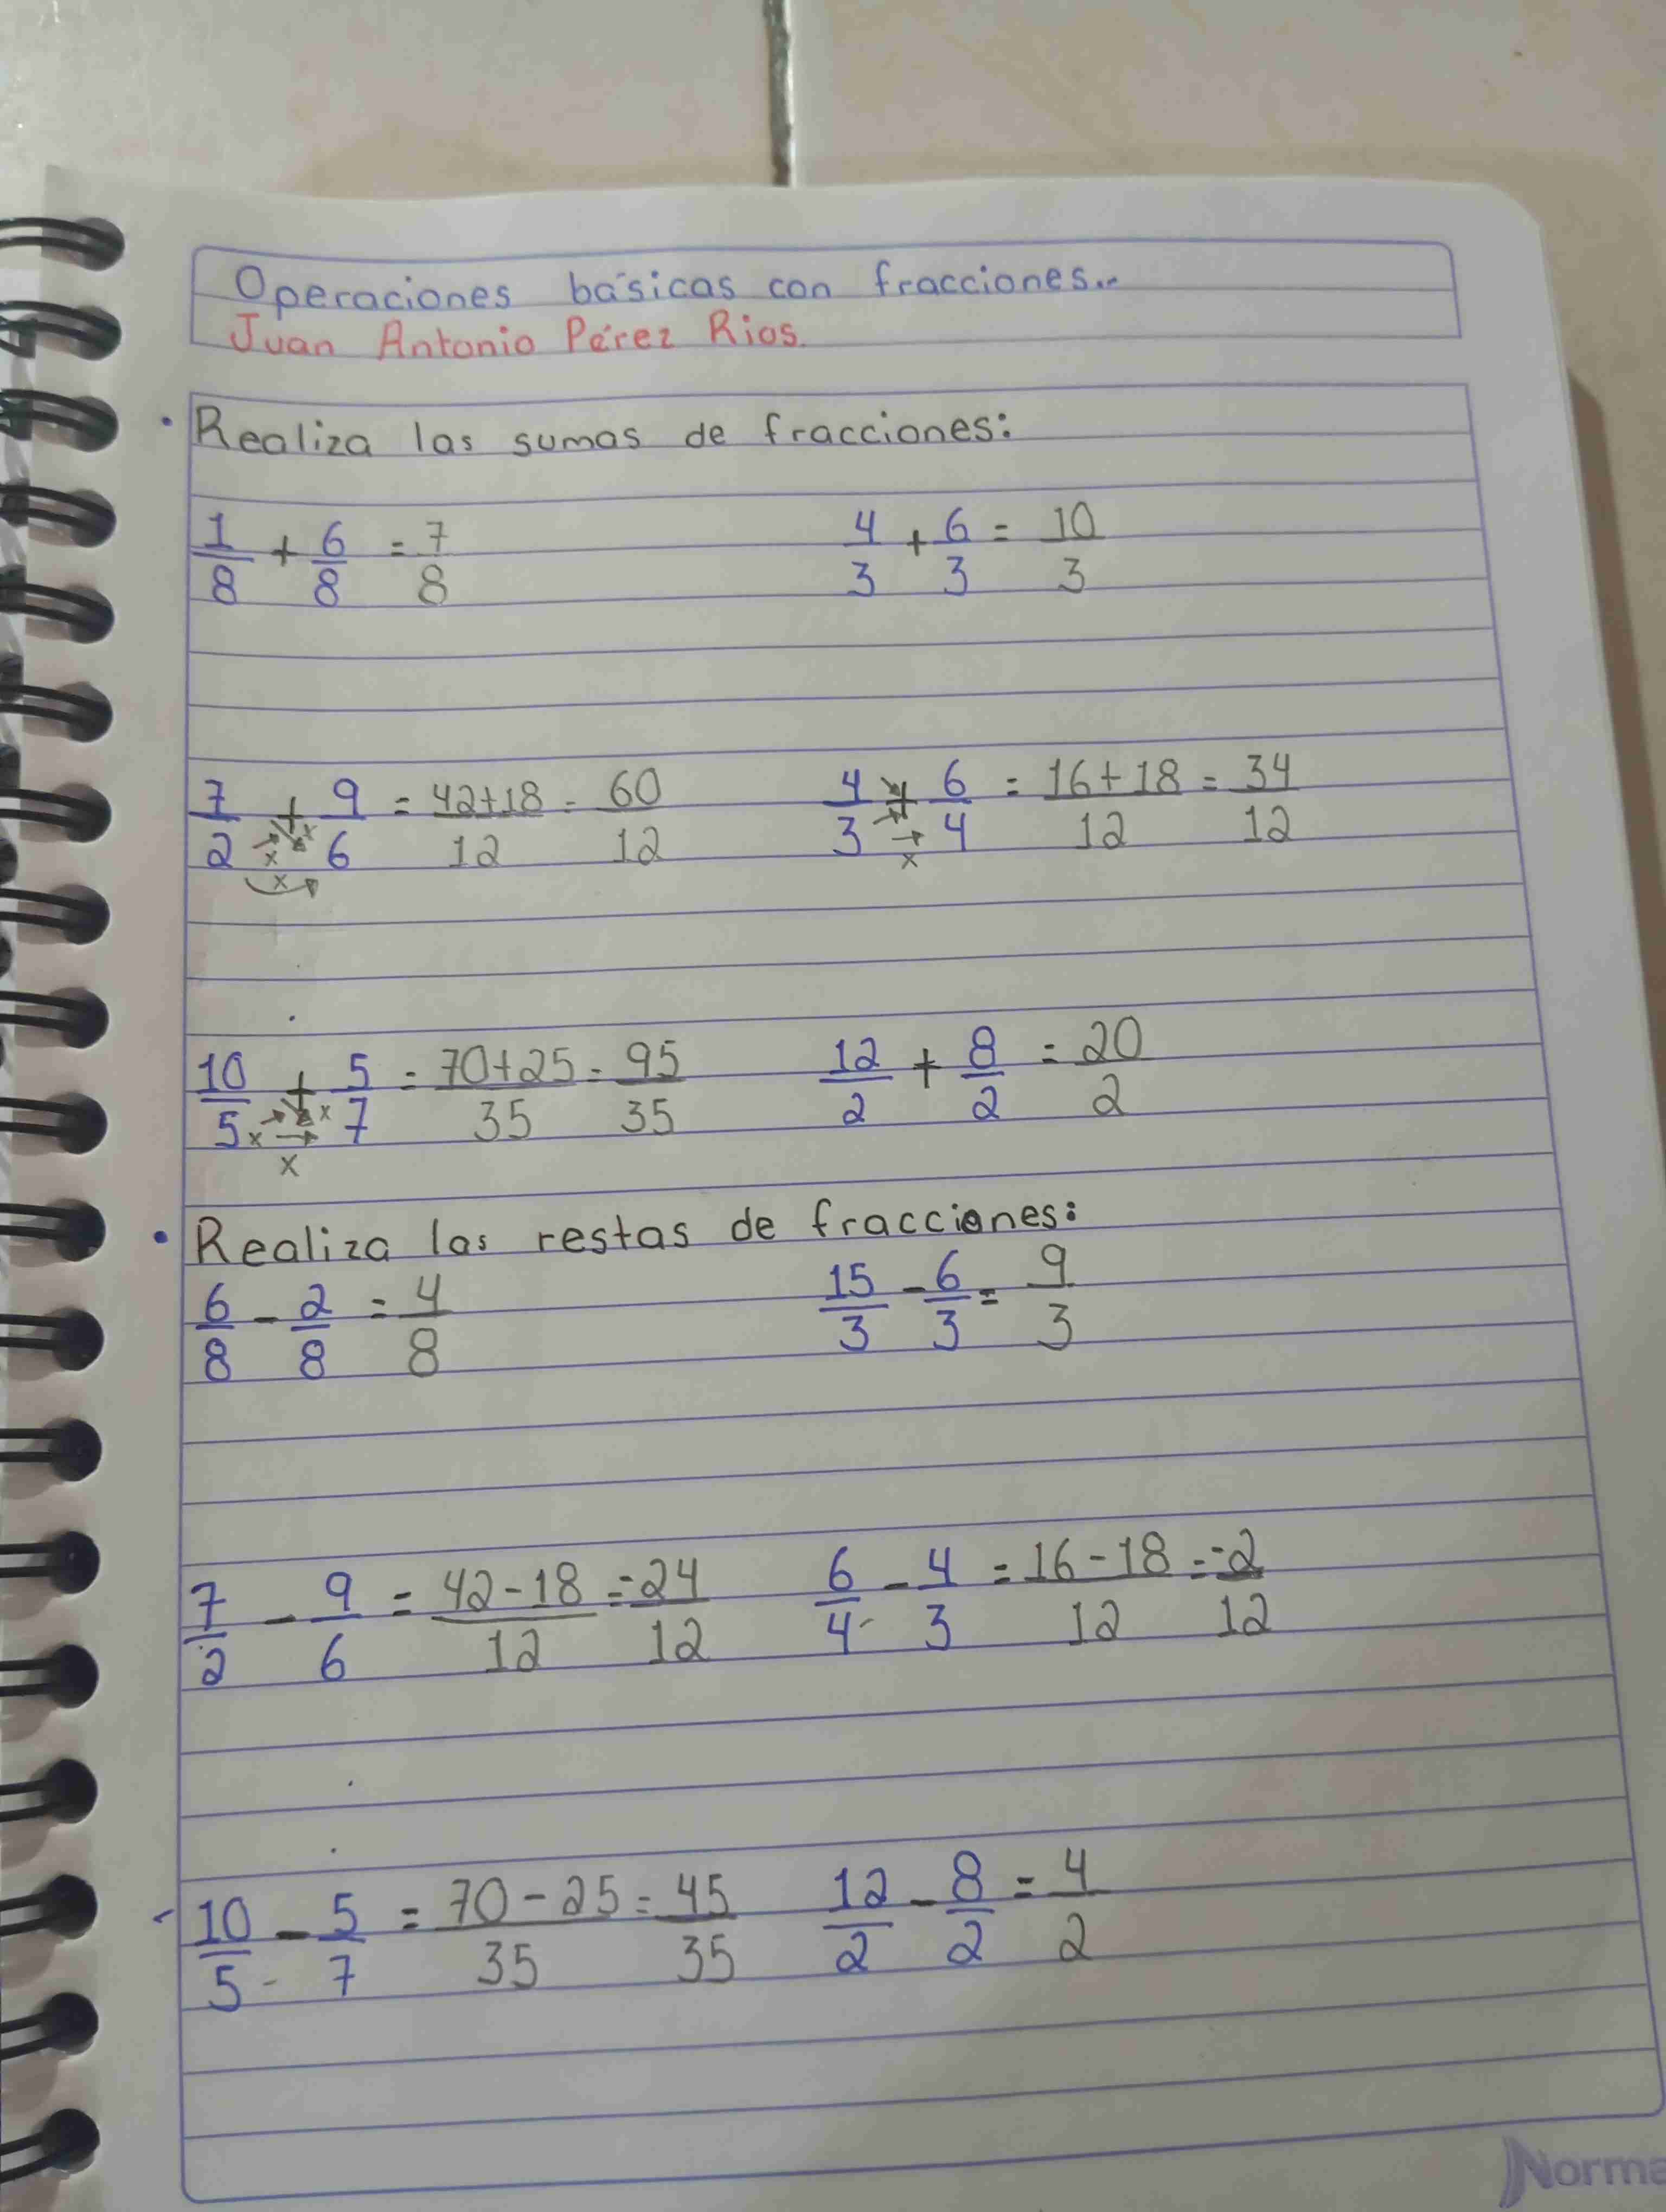 Operaciones básicas con fracciones..
Juan Antonio Pérez Rios.
• Realiza las sumas de fracciones:
1/8 + 6/8 = 7/8    4/3 + 6/3 = 10/3
7/2 + 9/6 = 42+18/12 = 60/12    4/3 + 6/4 = 16+18/12 = 34/12
x x x x
10/5 + 5/7 = 70+25/35 = 95/35    12/2 + 8/2 = 20/2
x x x
• Realiza las restas de fracciones:
6/8 - 2/8 = 4/8    15/3 - 6/3 = 9/3
7/2 - 9/6 = 42-18/12 = -24/12    6/4 - 4/3 = 16-18/12 = -2/12
10/5 - 5/7 = 70-25/35 = 45/35    12/2 - 8/2 = 4/2
Norma